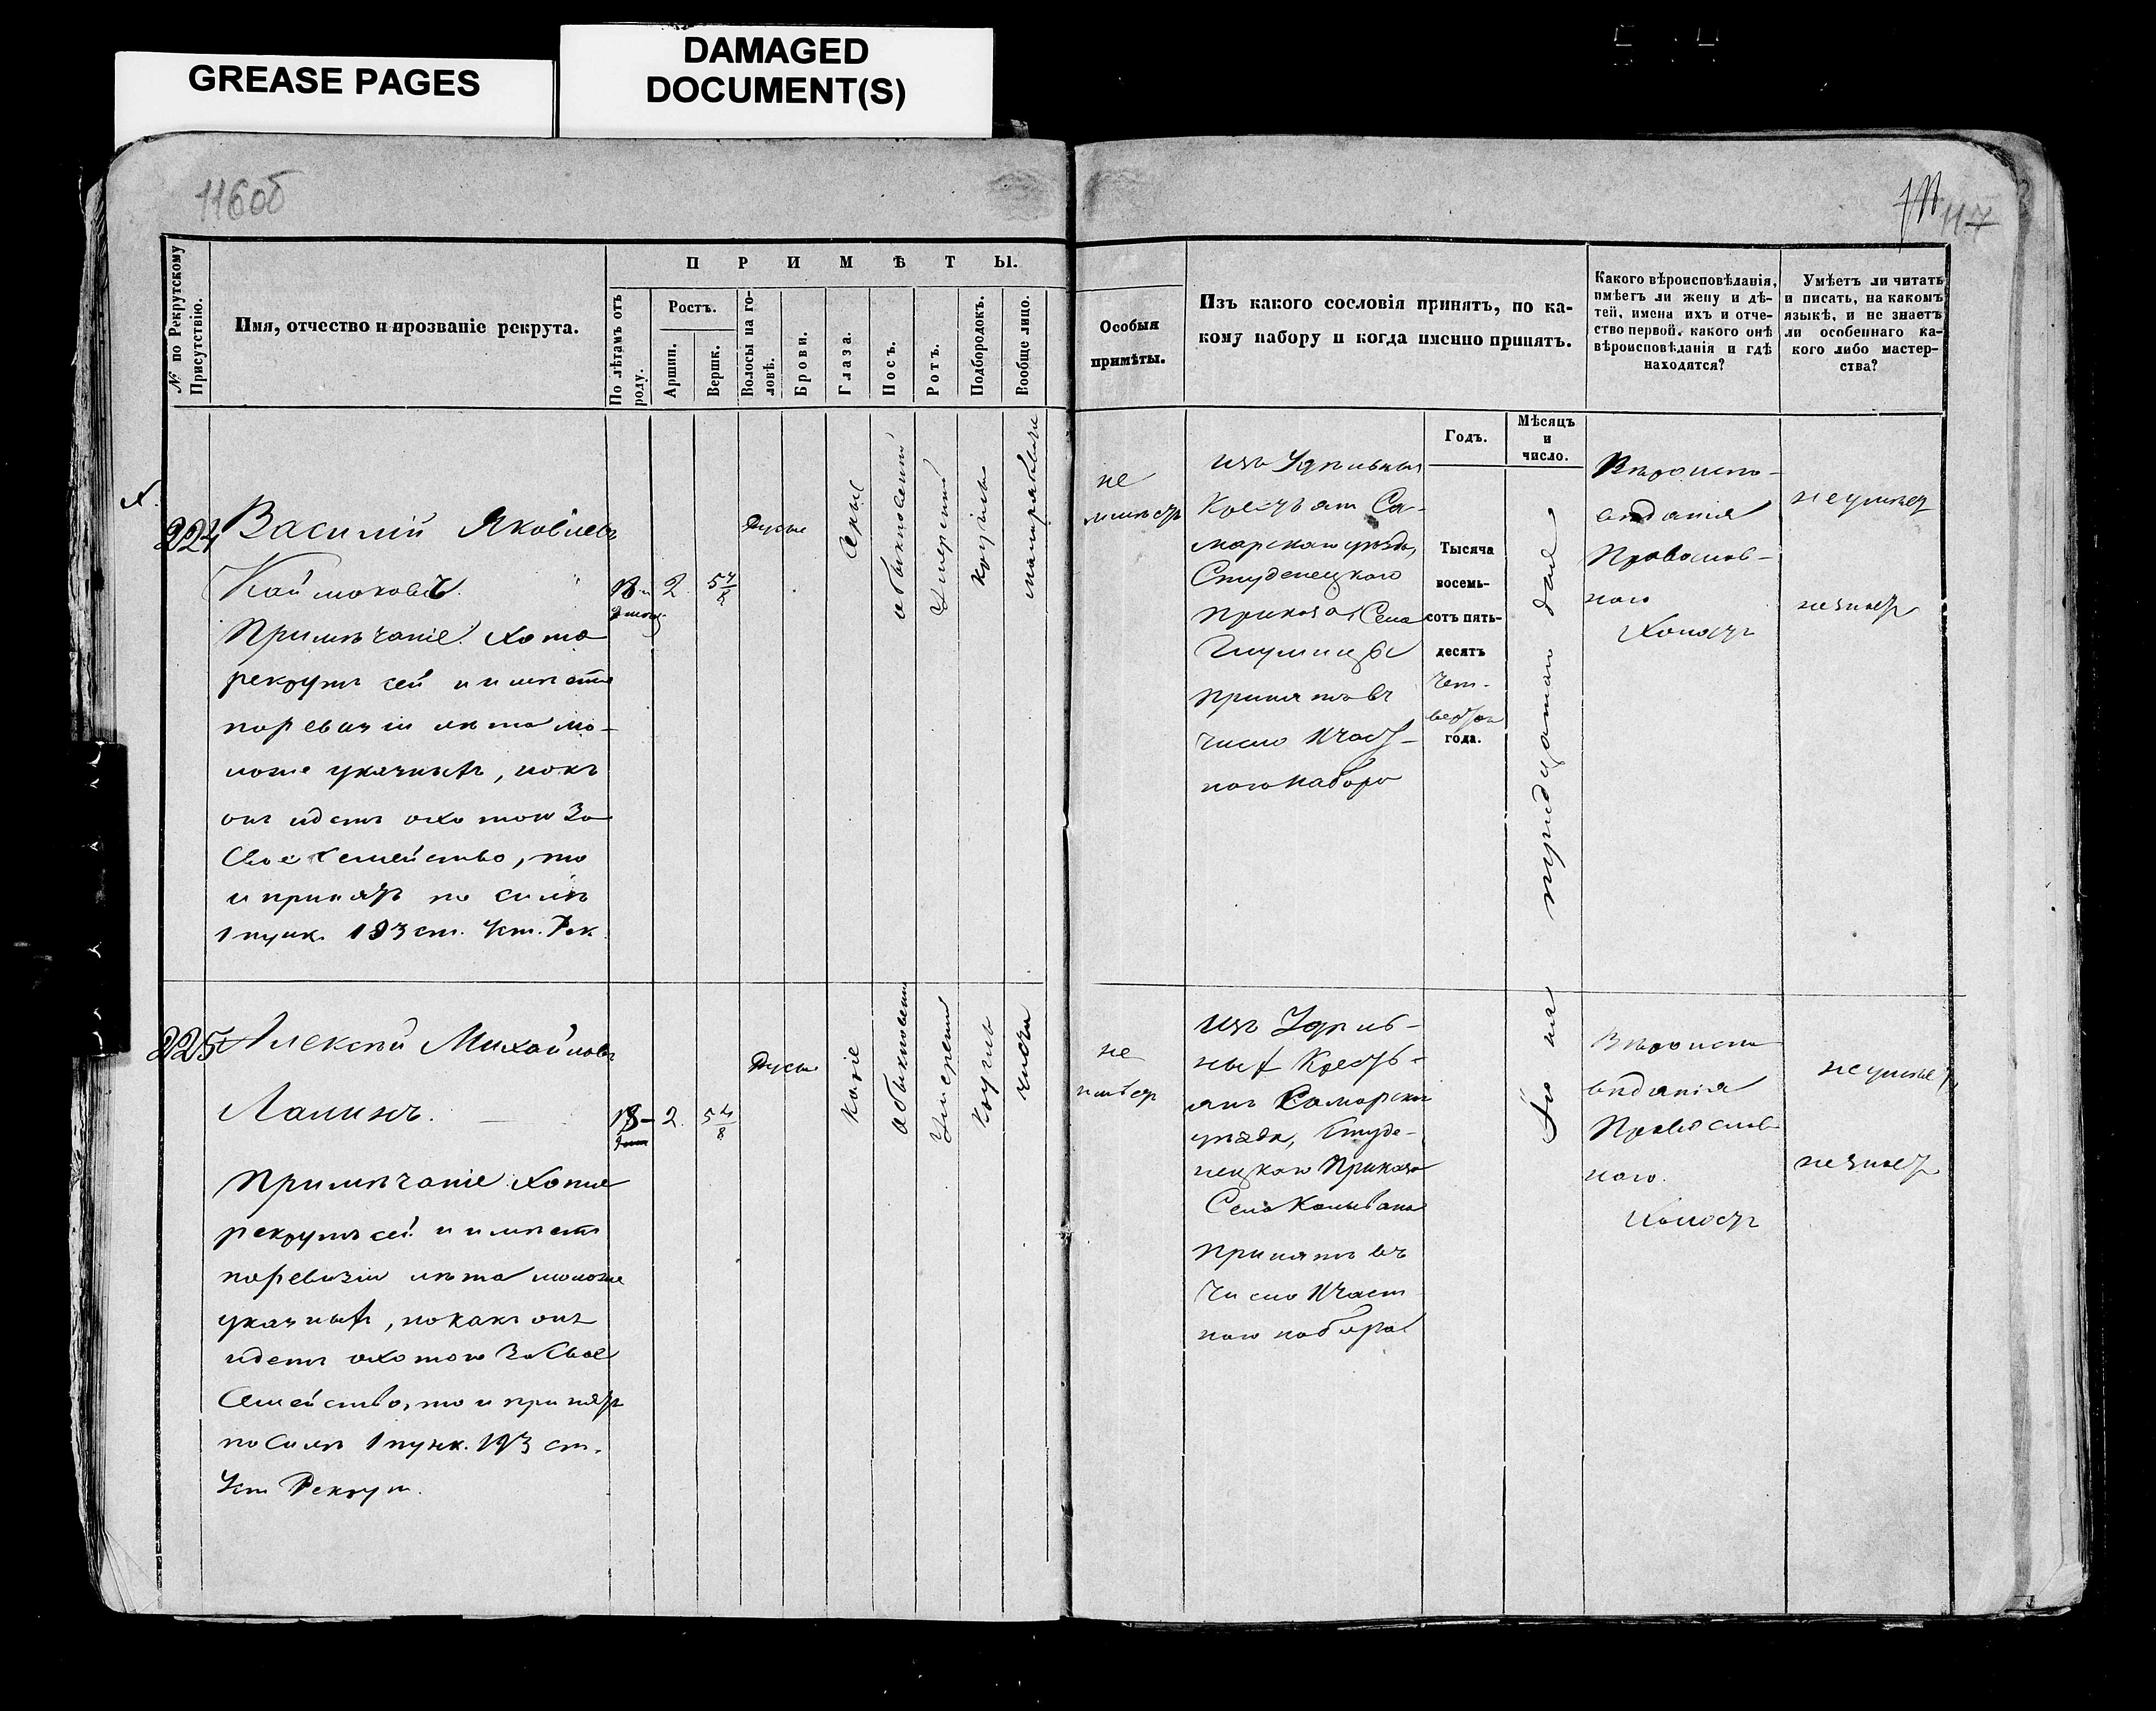 GREASE PAGES
DAMAGED
DOCUMENT(S)
116об
117
№ по Рекрутскому Присутствію.
Имя, отчество и прозваніе рекрута.
ПРИМѢТЫ.
По лѣтамъ отъ роду.
Ростъ.
Аршин.
Вершк.
Волосы на го-
ловѣ.
Брови.
Глаза.
Носъ.
Ротъ.
Подбородокъ.
Вообще лицо.
Особыя
примѣты.
Изъ какого сословія принятъ, по ка-
кому набору и когда именно принятъ.
Какого вѣроисповѣданія,
имѣетъ ли жену и дѣ-
тей, имена ихъ и отче-
ство первой, какого онѣ
вѣроисповѣданія и гдѣ
находятся?
Умѣетъ ли читать
и писать, на какомъ
языкѣ, и не знаетъ
ли особеннаго ка-
кого либо мастер-
ства?
Годъ.
Мѣсяцъ
и
число.
224
Василій Яковлевъ
Примѣчаніе. Хотя
рекрутъ сей и имѣетъ
по ревизіи лѣта мо-
ложе указныхъ, но какъ
онъ идетъ охотою за
свое семейство, то
и принятъ по силѣ
1 пунк. 193 ст. Уст. Рек.
18
2
5 4/8
Русые
Сѣрые
обыкновенный
умѣренный
круглый
не
имѣетъ
изъ Удѣльныхъ
Крестьянъ Са-
марскаго уѣзда,
Студенецкаго
приказа, Села
принятъ въ
число Част-
наго набора
Тысяча
восемь-
сотъ пять-
десятъ
чет-
вертаго
года.
тридцатаго
Вѣроиспо-
вѣданія
Православ-
наго
Холостъ
не умѣетъ
не знаетъ
225
Алексѣй Михайловъ
Лапинъ.
Примѣчаніе. Хотя
рекрутъ сей и имѣетъ
по ревизіи лѣта моложе
указныхъ, но какъ онъ
идетъ охотою за свое
семейство, то и принятъ
по силѣ 1 пунк. 193 ст.
Уст Рекрут.
18
2
5 4/8
Русые
Каріе
обыкновенный
умѣренный
круглый
чисто
не
имѣетъ
изъ Удѣль-
ныхъ Кресть-
янъ Самарскаго
уѣзда, Студе-
нецкаго Приказа
Села Колывани
принятъ въ
число Част
наго набора
Вѣроиспо
вѣданія
Православ
наго.
Холостъ
не умѣетъ
не знаетъ